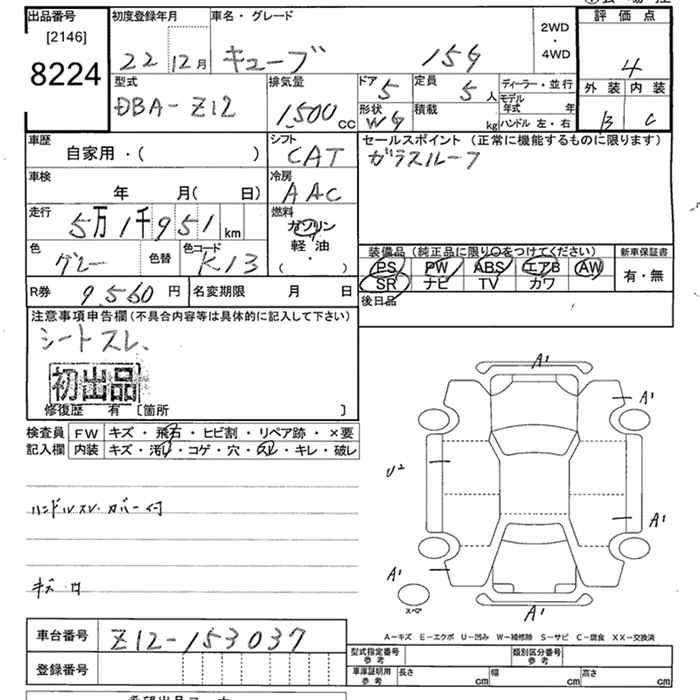 出品番号
[2146]
8224
初度登録年月
22 12月
車名・グレード
キューブ 15G
2WD
・
4WD
評価点
4
外装 内装
B C
型式
DBA-Z12
排気量
1,500 CC
ドア 5
定員 5 人
形状 WG
積載 kg
ディーラー・並行
モデル年式 年
ハンドル 左・右
車歴
自家用・( )
シフト
CAT
セールスポイント (正常に機能するものに限ります)
ガラスルーフ
車検
年 月( 日)
冷房
AAC
走行
5万1千951 km
燃料
ガソリン
軽油
( ・ )
色 グレー
色替
色コード K13
装備品 (純正品に限り○をつけてください)
PS PW ABS エアB AW
SR ナビ TV カワ
新車保証書
有・無
R券 9,560 円
名変期限 月 日
後日品
注意事項申告欄(不具合内容等は具体的に記入して下さい)
シートスレ、
初出品
修復歴 有 [箇所 ]
検査員 FW キズ・飛石・ヒビ割・リペア跡・×要
記入欄 内装 キズ・汚れ・コゲ・穴・スレ・キレ・破レ
ハンドルスレ・カバー付
A1
A1
U2
A1
A1
スペア
A1
A−キズ E−エクボ U−凹み W−補修跡 S−サビ C−腐食 XX−交換済
車台番号 Z12-153037
登録番号
型式指定番号 参考
類別区分番号 参考
車庫証明用 参考
長さ cm
幅 cm
高さ cm